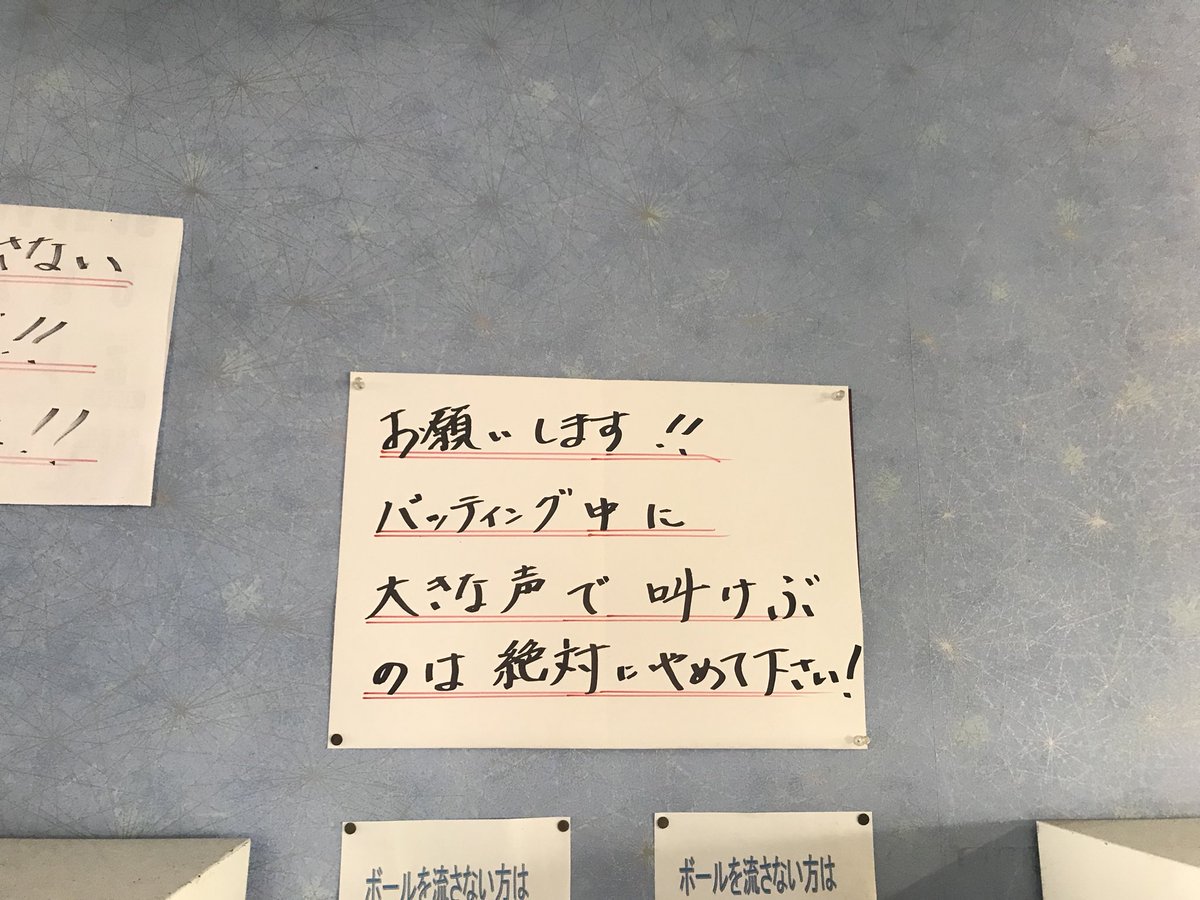 さない
!!
!!
お願いします!!
バッティング中に
大きな声で叫けぶ
のは絶対にやめて下さい!
ボールを流さない方は
ボールを流さない方は